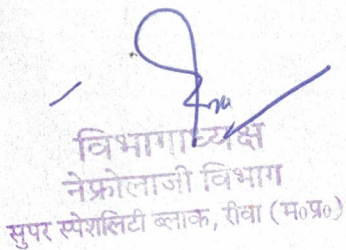 विभागाध्यक्ष
नेफ्रोलाजी विभाग
सुपर स्पेशलिटी ब्लाक, रीवा (म०प्र०)